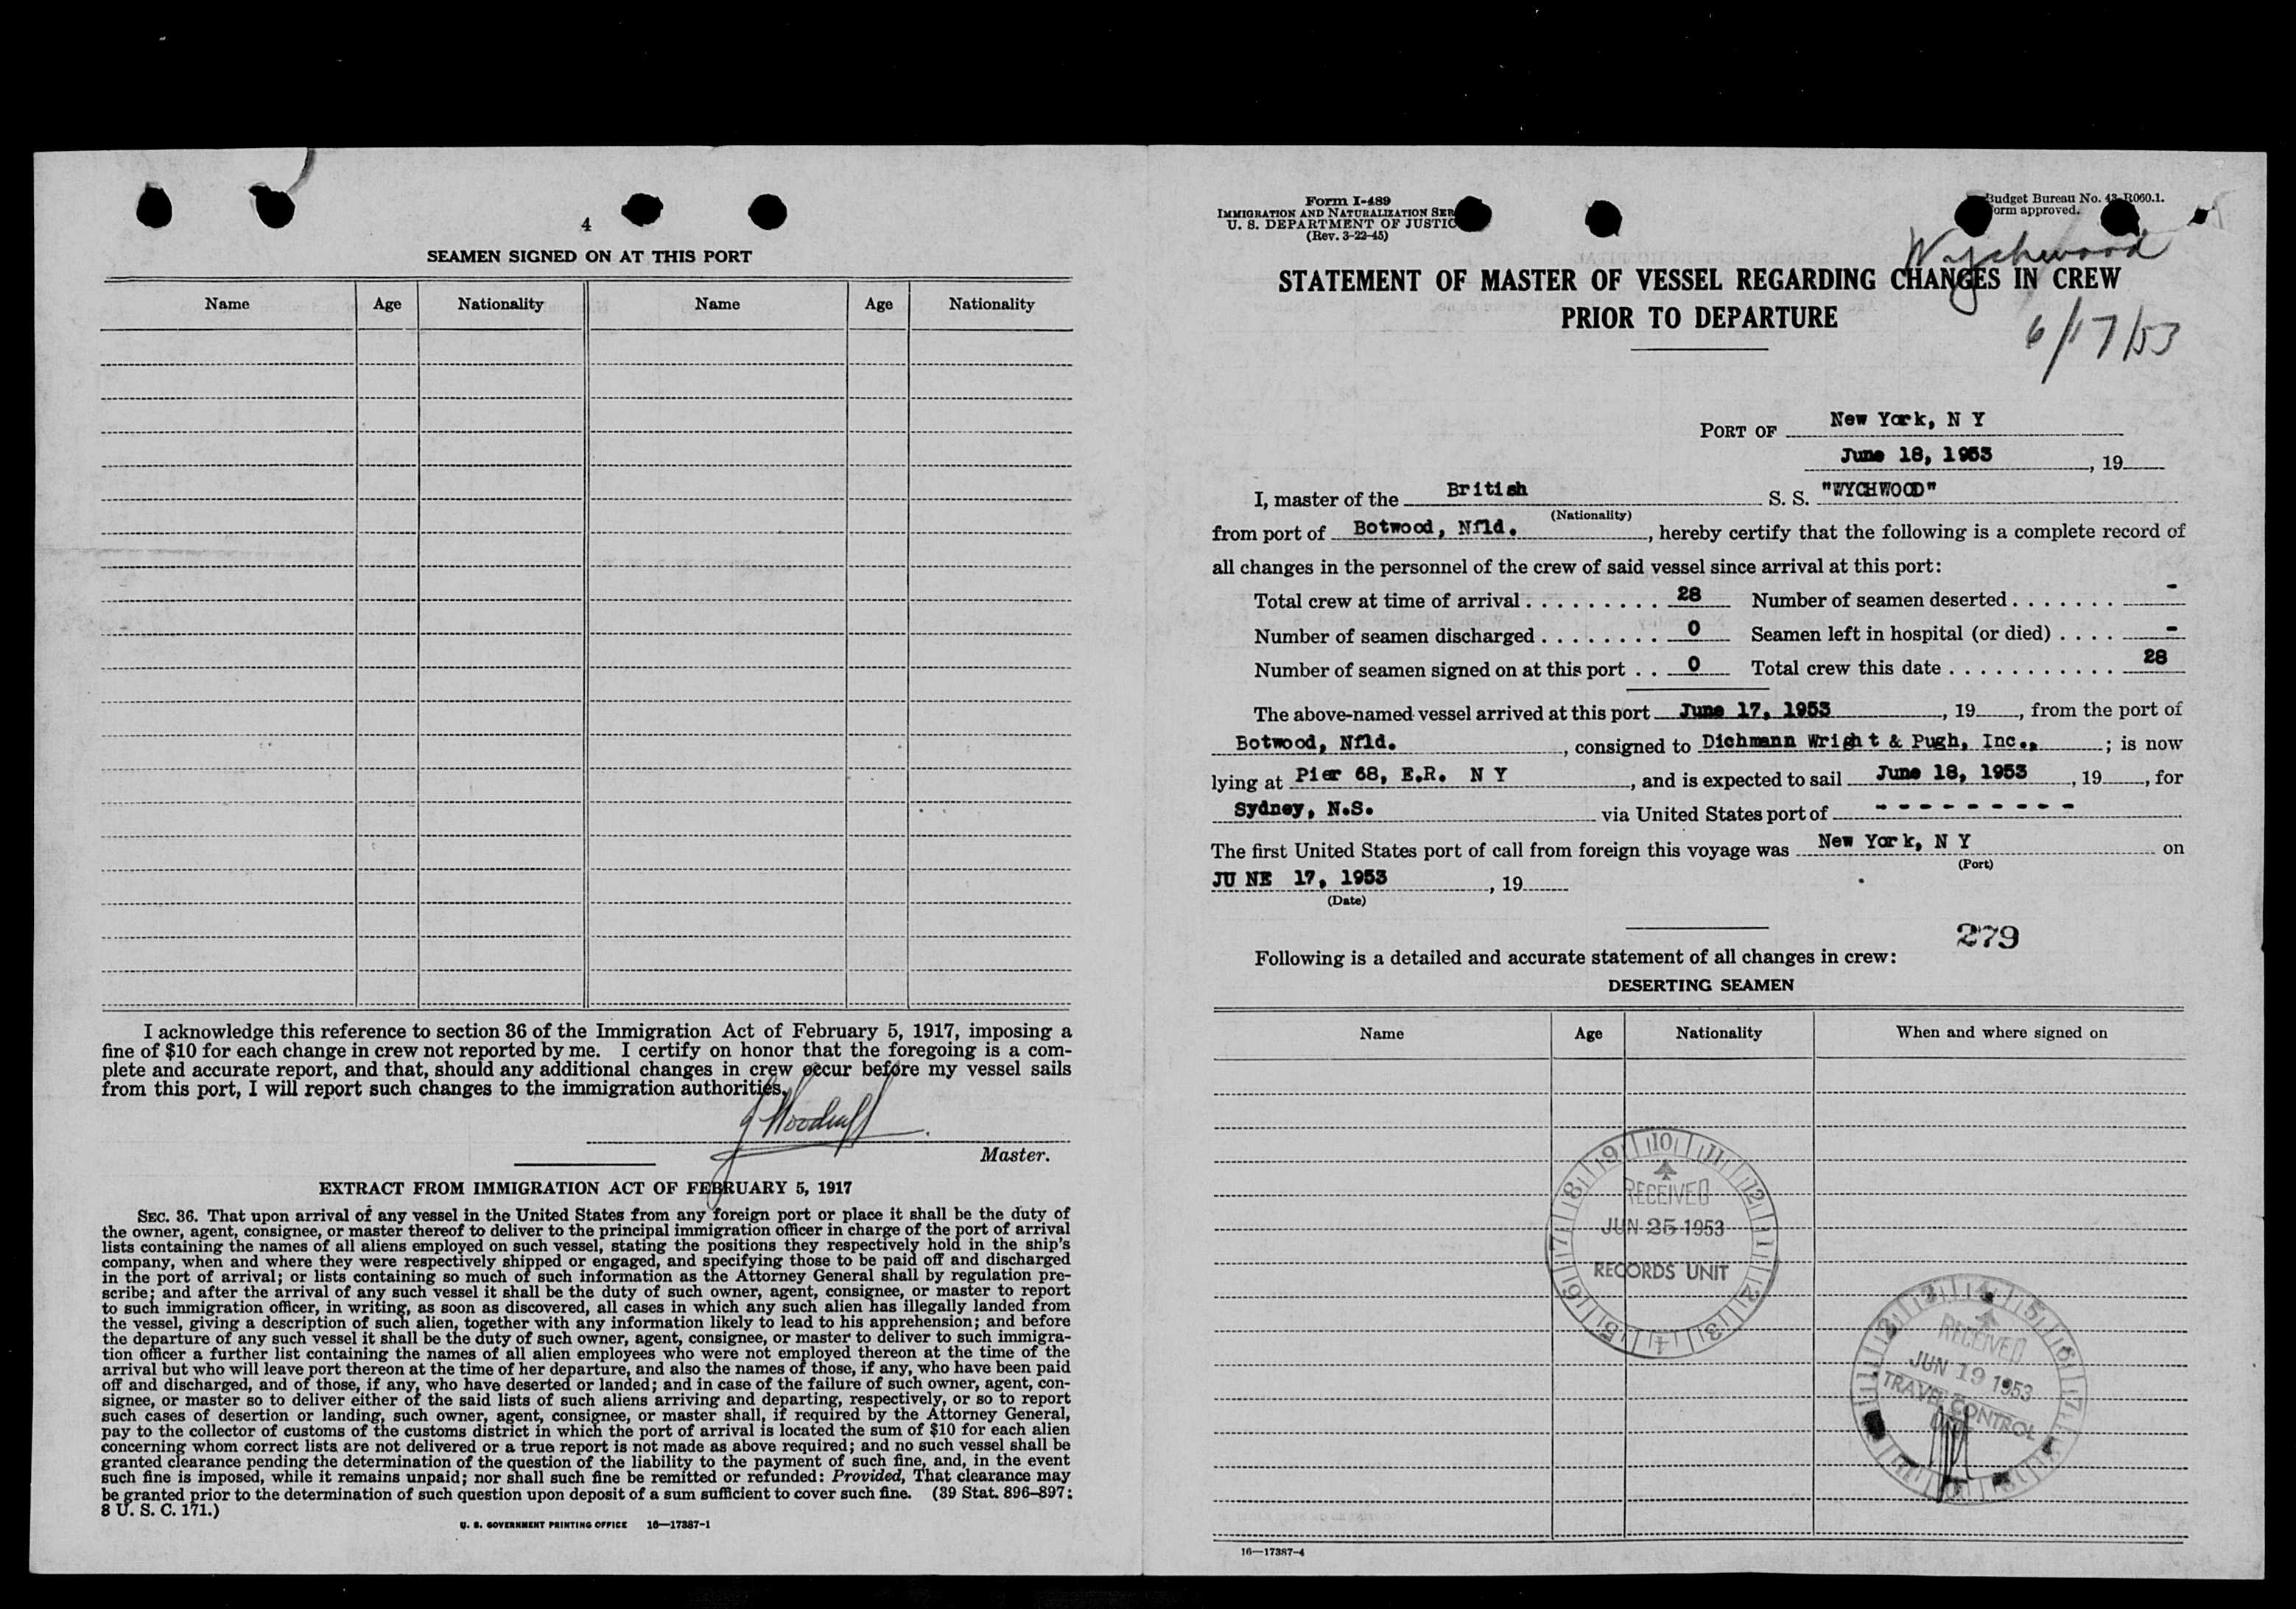 4
SEAMEN SIGNED ON AT THIS PORT
Name Age Nationality Name Age Nationality
I acknowledge this reference to section 36 of the Immigration Act of February 5, 1917, imposing a
fine of $10 for each change in crew not reported by me. I certify on honor that the foregoing is a com-
plete and accurate report, and that, should any additional changes in crew occur before my vessel sails
from this port, I will report such changes to the immigration authorities.
J Woodruff
Master.
EXTRACT FROM IMMIGRATION ACT OF FEBRUARY 5, 1917
SEC. 36. That upon arrival of any vessel in the United States from any foreign port or place it shall be the duty of
the owner, agent, consignee, or master thereof to deliver to the principal immigration officer in charge of the port of arrival
lists containing the names of all aliens employed on such vessel, stating the positions they respectively hold in the ship's
company, when and where they were respectively shipped or engaged, and specifying those to be paid off and discharged
in the port of arrival; or lists containing so much of such information as the Attorney General shall by regulation pre-
scribe; and after the arrival of any such vessel it shall be the duty of such owner, agent, consignee, or master to report
to such immigration officer, in writing, as soon as discovered, all cases in which any such alien has illegally landed from
the vessel, giving a description of such alien, together with any information likely to lead to his apprehension; and before
the departure of any such vessel it shall be the duty of such owner, agent, consignee, or master to deliver to such immigra-
tion officer a further list containing the names of all alien employees who were not employed thereon at the time of the
arrival but who will leave port thereon at the time of her departure, and also the names of those, if any, who have been paid
off and discharged, and of those, if any, who have deserted or landed; and in case of the failure of such owner, agent, con-
signee, or master so to deliver either of the said lists of such aliens arriving and departing, respectively, or so to report
such cases of desertion or landing, such owner, agent, consignee, or master shall, if required by the Attorney General,
pay to the collector of customs of the customs district in which the port of arrival is located the sum of $10 for each alien
concerning whom correct lists are not delivered or a true report is not made as above required; and no such vessel shall be
granted clearance pending the determination of the question of the liability to the payment of such fine, and, in the event
such fine is imposed, while it remains unpaid; nor shall such fine be remitted or refunded: Provided, That clearance may
be granted prior to the determination of such question upon deposit of a sum sufficient to cover such fine. (39 Stat. 896–897;
8 U. S. C. 171.)
U. S. GOVERNMENT PRINTING OFFICE 16—17387-1
Form I-489
IMMIGRATION AND NATURALIZATION SER
U. S. DEPARTMENT OF JUSTIC
(Rev. 3-22-45)
Budget Bureau No. 43-R060.1.
orm approved.
Wychwood
STATEMENT OF MASTER OF VESSEL REGARDING CHANGES IN CREW
PRIOR TO DEPARTURE
6/17/53
PORT OF New York, N Y
June 18, 1953, 19
I, master of the British S. S. "WYCHWOOD"
(Nationality)
from port of Botwood, Nfld., hereby certify that the following is a complete record of
all changes in the personnel of the crew of said vessel since arrival at this port:
Total crew at time of arrival . . . . . . . . . 28 Number of seamen deserted . . . . . . . -
Number of seamen discharged . . . . . . . . 0 Seamen left in hospital (or died) . . . . -
Number of seamen signed on at this port . . 0 Total crew this date . . . . . . . . . . . 28
The above-named vessel arrived at this port June 17, 1953, 19, from the port of
Botwood, Nfld., consigned to Dichmann Wright & Pugh, Inc.,; is now
lying at Pier 68, E.R. N Y, and is expected to sail June 18, 1953, 19, for
Sydney, N.S. via United States port of - - - - - - - - -
The first United States port of call from foreign this voyage was New York, N Y on
(Port)
JUNE 17, 1953, 19
(Date)
279
Following is a detailed and accurate statement of all changes in crew:
DESERTING SEAMEN
Name Age Nationality When and where signed on
9 10 11 12 1 2 3 4 5 6 7 8
RECEIVED
JUN 25 1953
RECORDS UNIT
RECEIVED
JUN 19 1953
TRAVEL CONTROL
16—17387-4